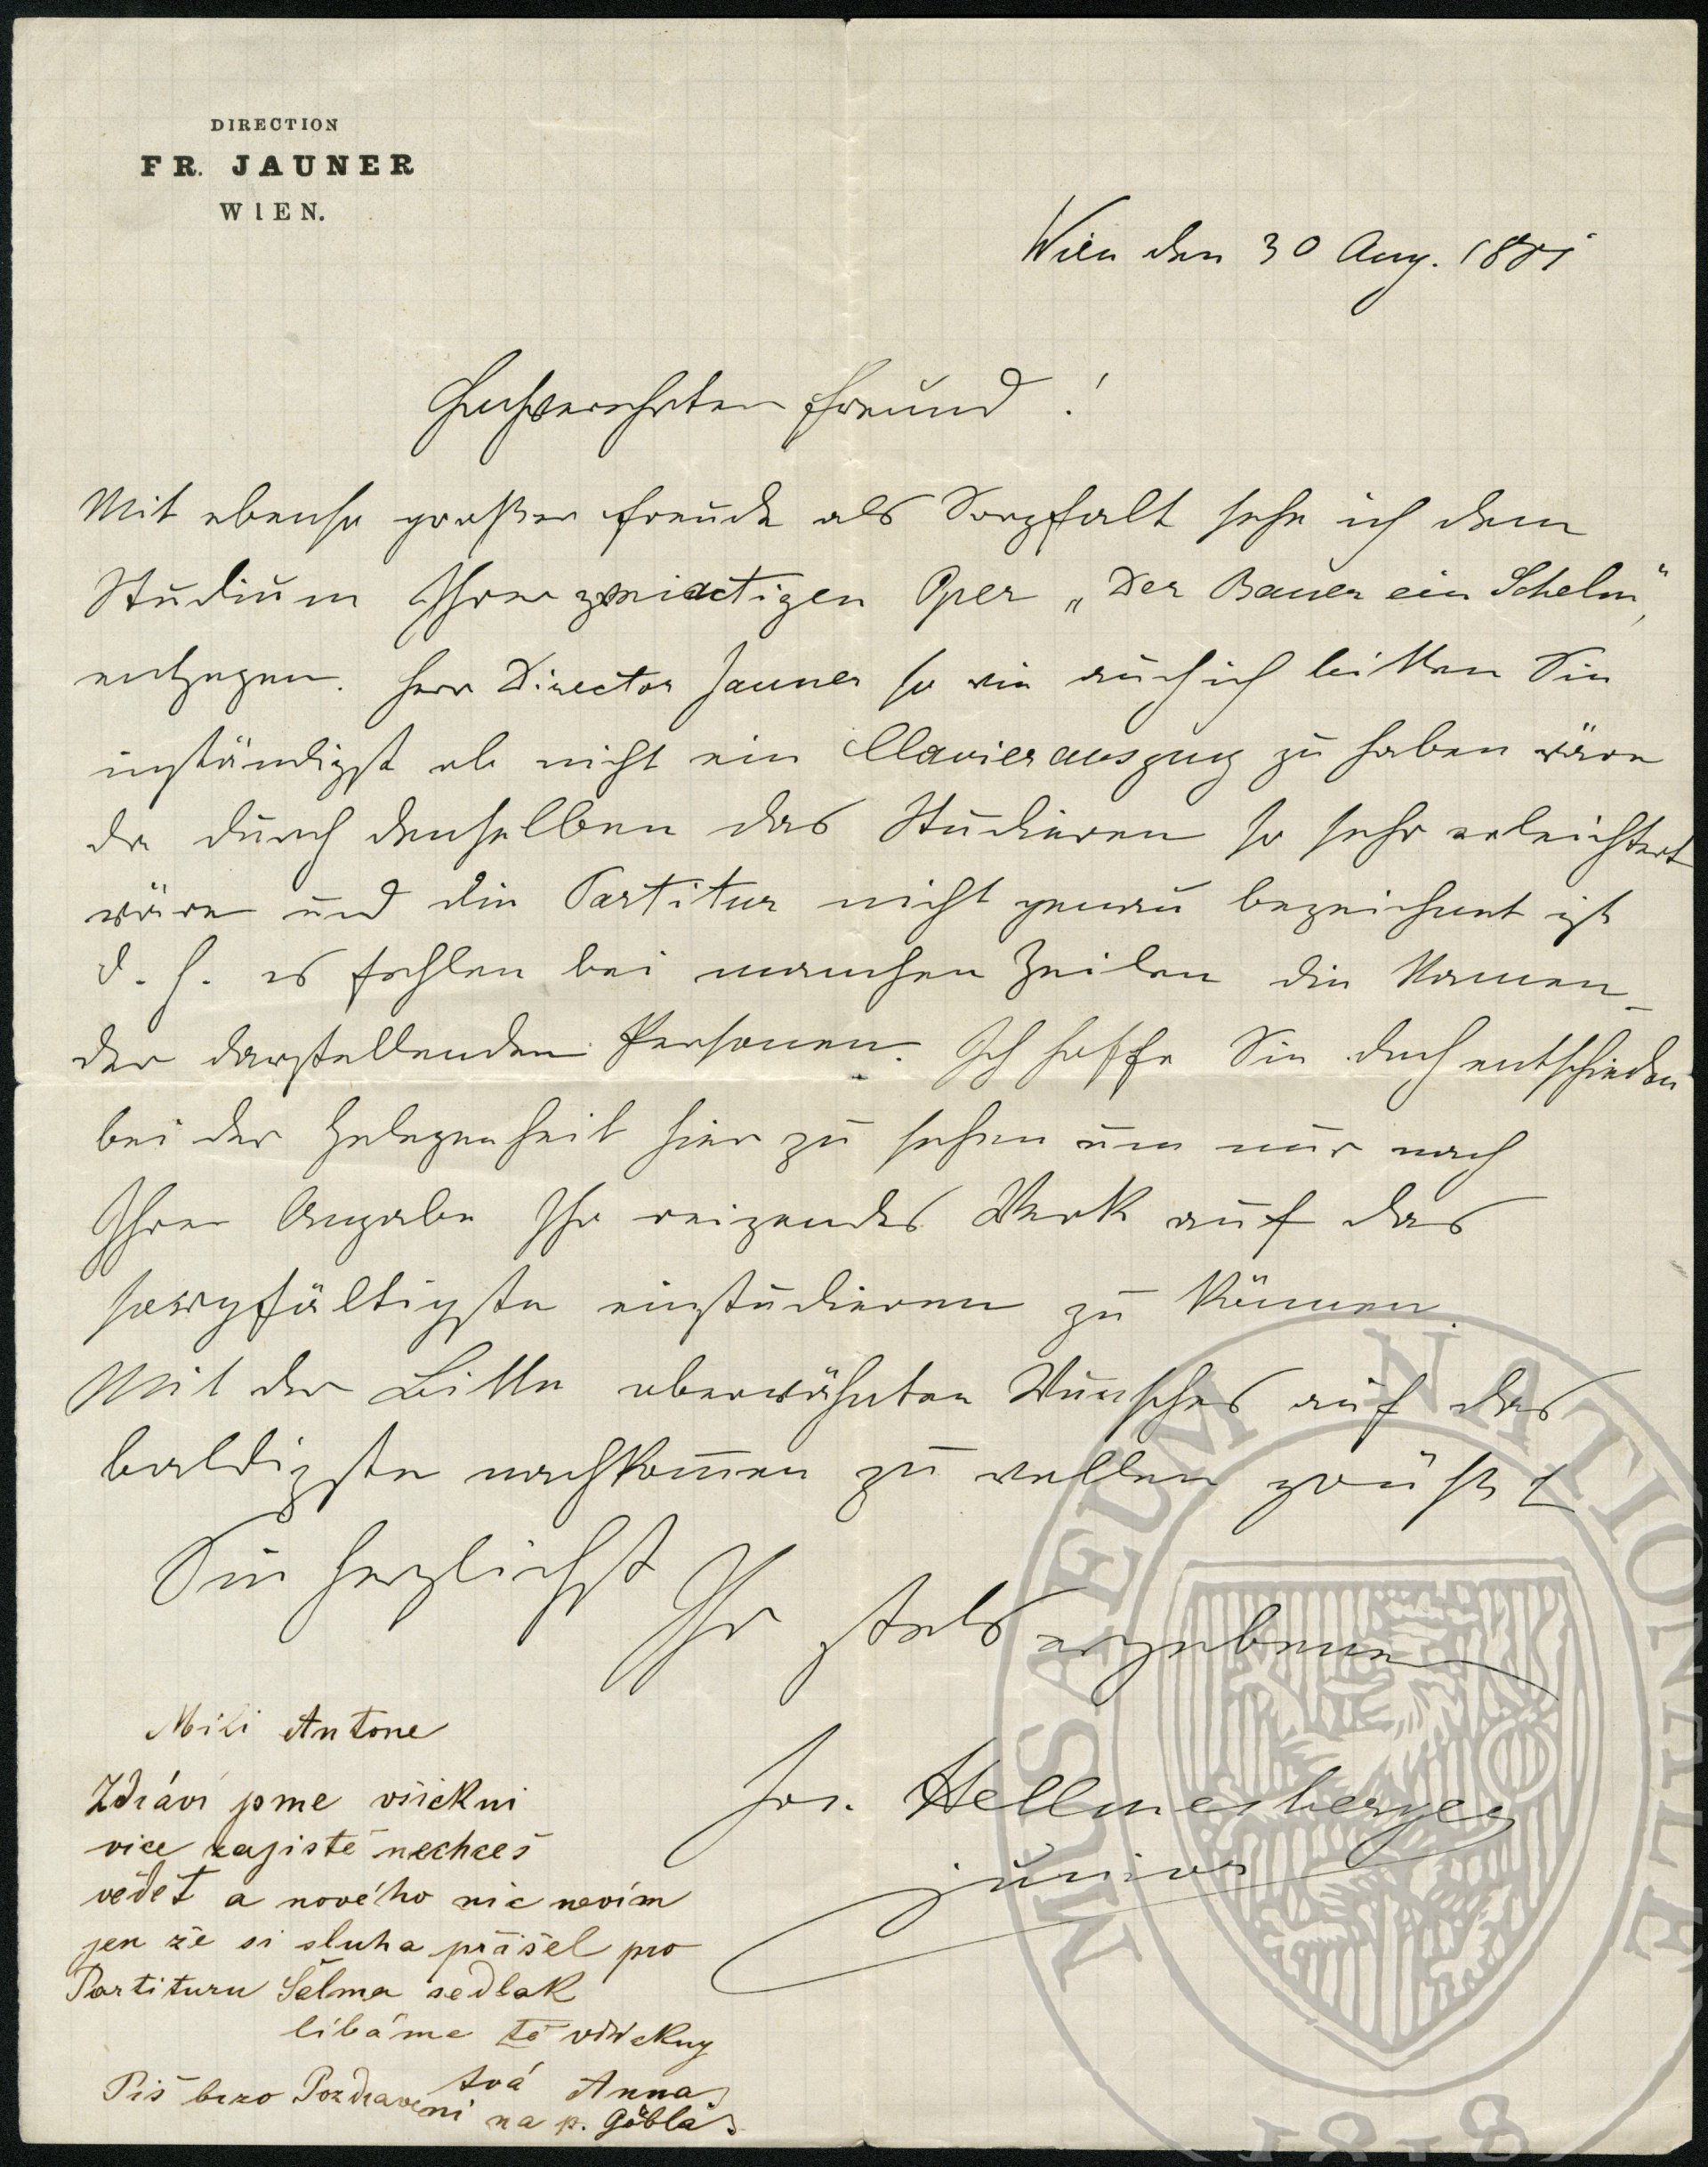 DIRECTION
FR. JAUNER
WIEN.
Wien den 30 Aug. 1881
Hochverehrter Freund!
Mit ebenso großer Freude als Sorgfalt sehe ich dem
Studium Ihrer zweiactigen Oper „Der Bauer ein Schelm“
entgegen. Herr Director Jauner so wie auch ich bitten Sie
inständigst ob nicht ein Clavierauszug zu haben wäre
da durch denselben das Studieren so sehr erleichtert
wäre und die Partitur nicht genau bezeichnet ist
d. h. es fehlen bei manchen Zeilen die Namen
der darstellenden Personen. Ich hoffe Sie doch entschieden
bei der Gelegenheit hier zu sehen um nur nach
Ihrer Angabe Ihr reizendes Werk auf das
sorgfältigste einstudieren zu können.
Mit der Bitte oberwähnten Wunsches auf das
baldigste nachkom̅en zu wollen grüßt
Sie herzlichst
Ihr stets ergebener
Jos. Hellmesberger
junior
Milí Antone
Zdrávi jsme všickni
vice zajisté nechceš
vědět a nového nic nevím
jen že si sluha přišel pro
Partituru Šelma sedlak
líbáme tě všickny
tvá Anna
Piš brzo Pozdraveni na p. Göbla
MUSAEUM NATIONALE
1818